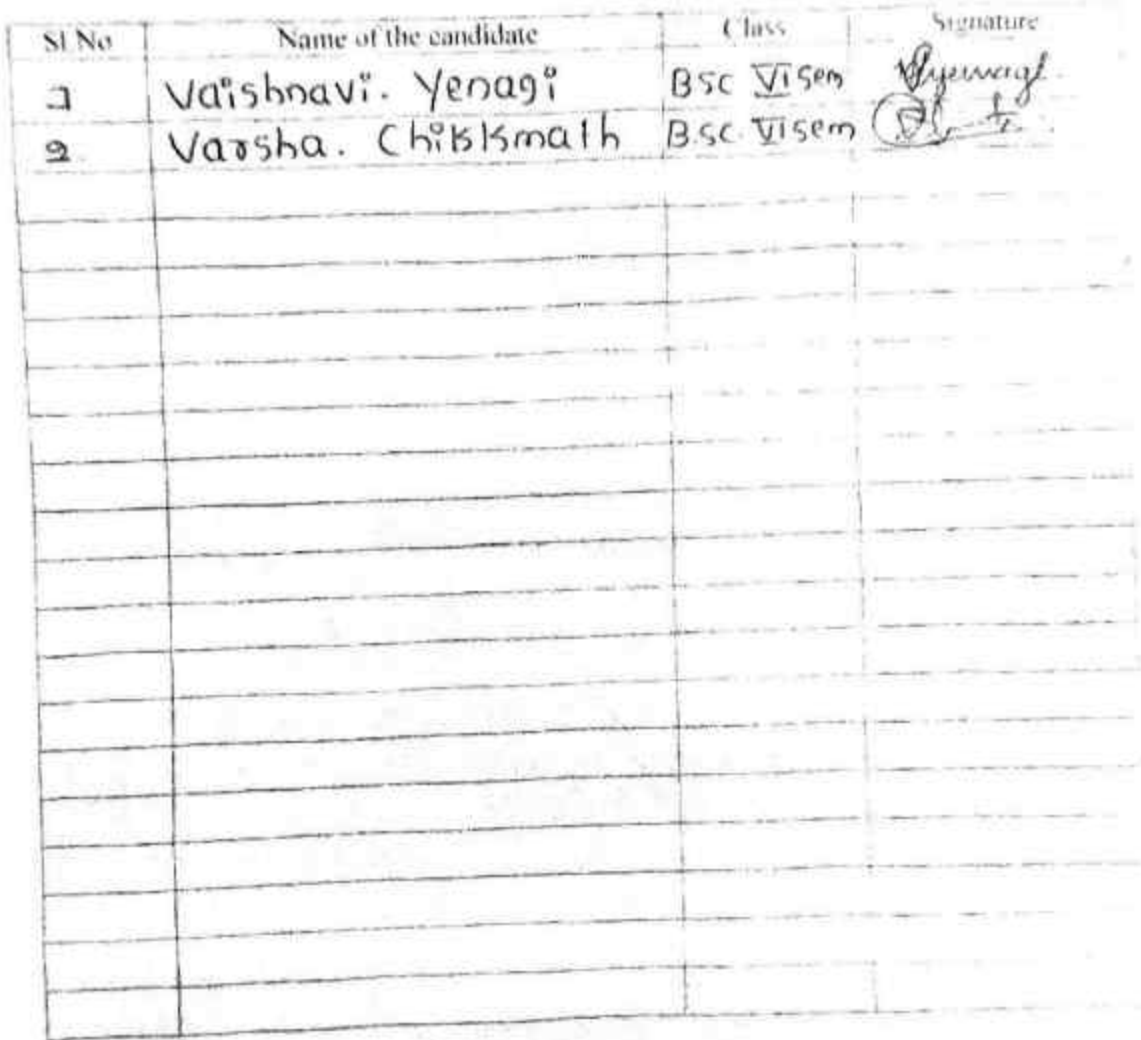 Sl No Name of the candidate Class Signature
1 Vaishnavi. Yenagi Bsc VI sem
2 Varsha. Chikkmath B.sc. VI sem